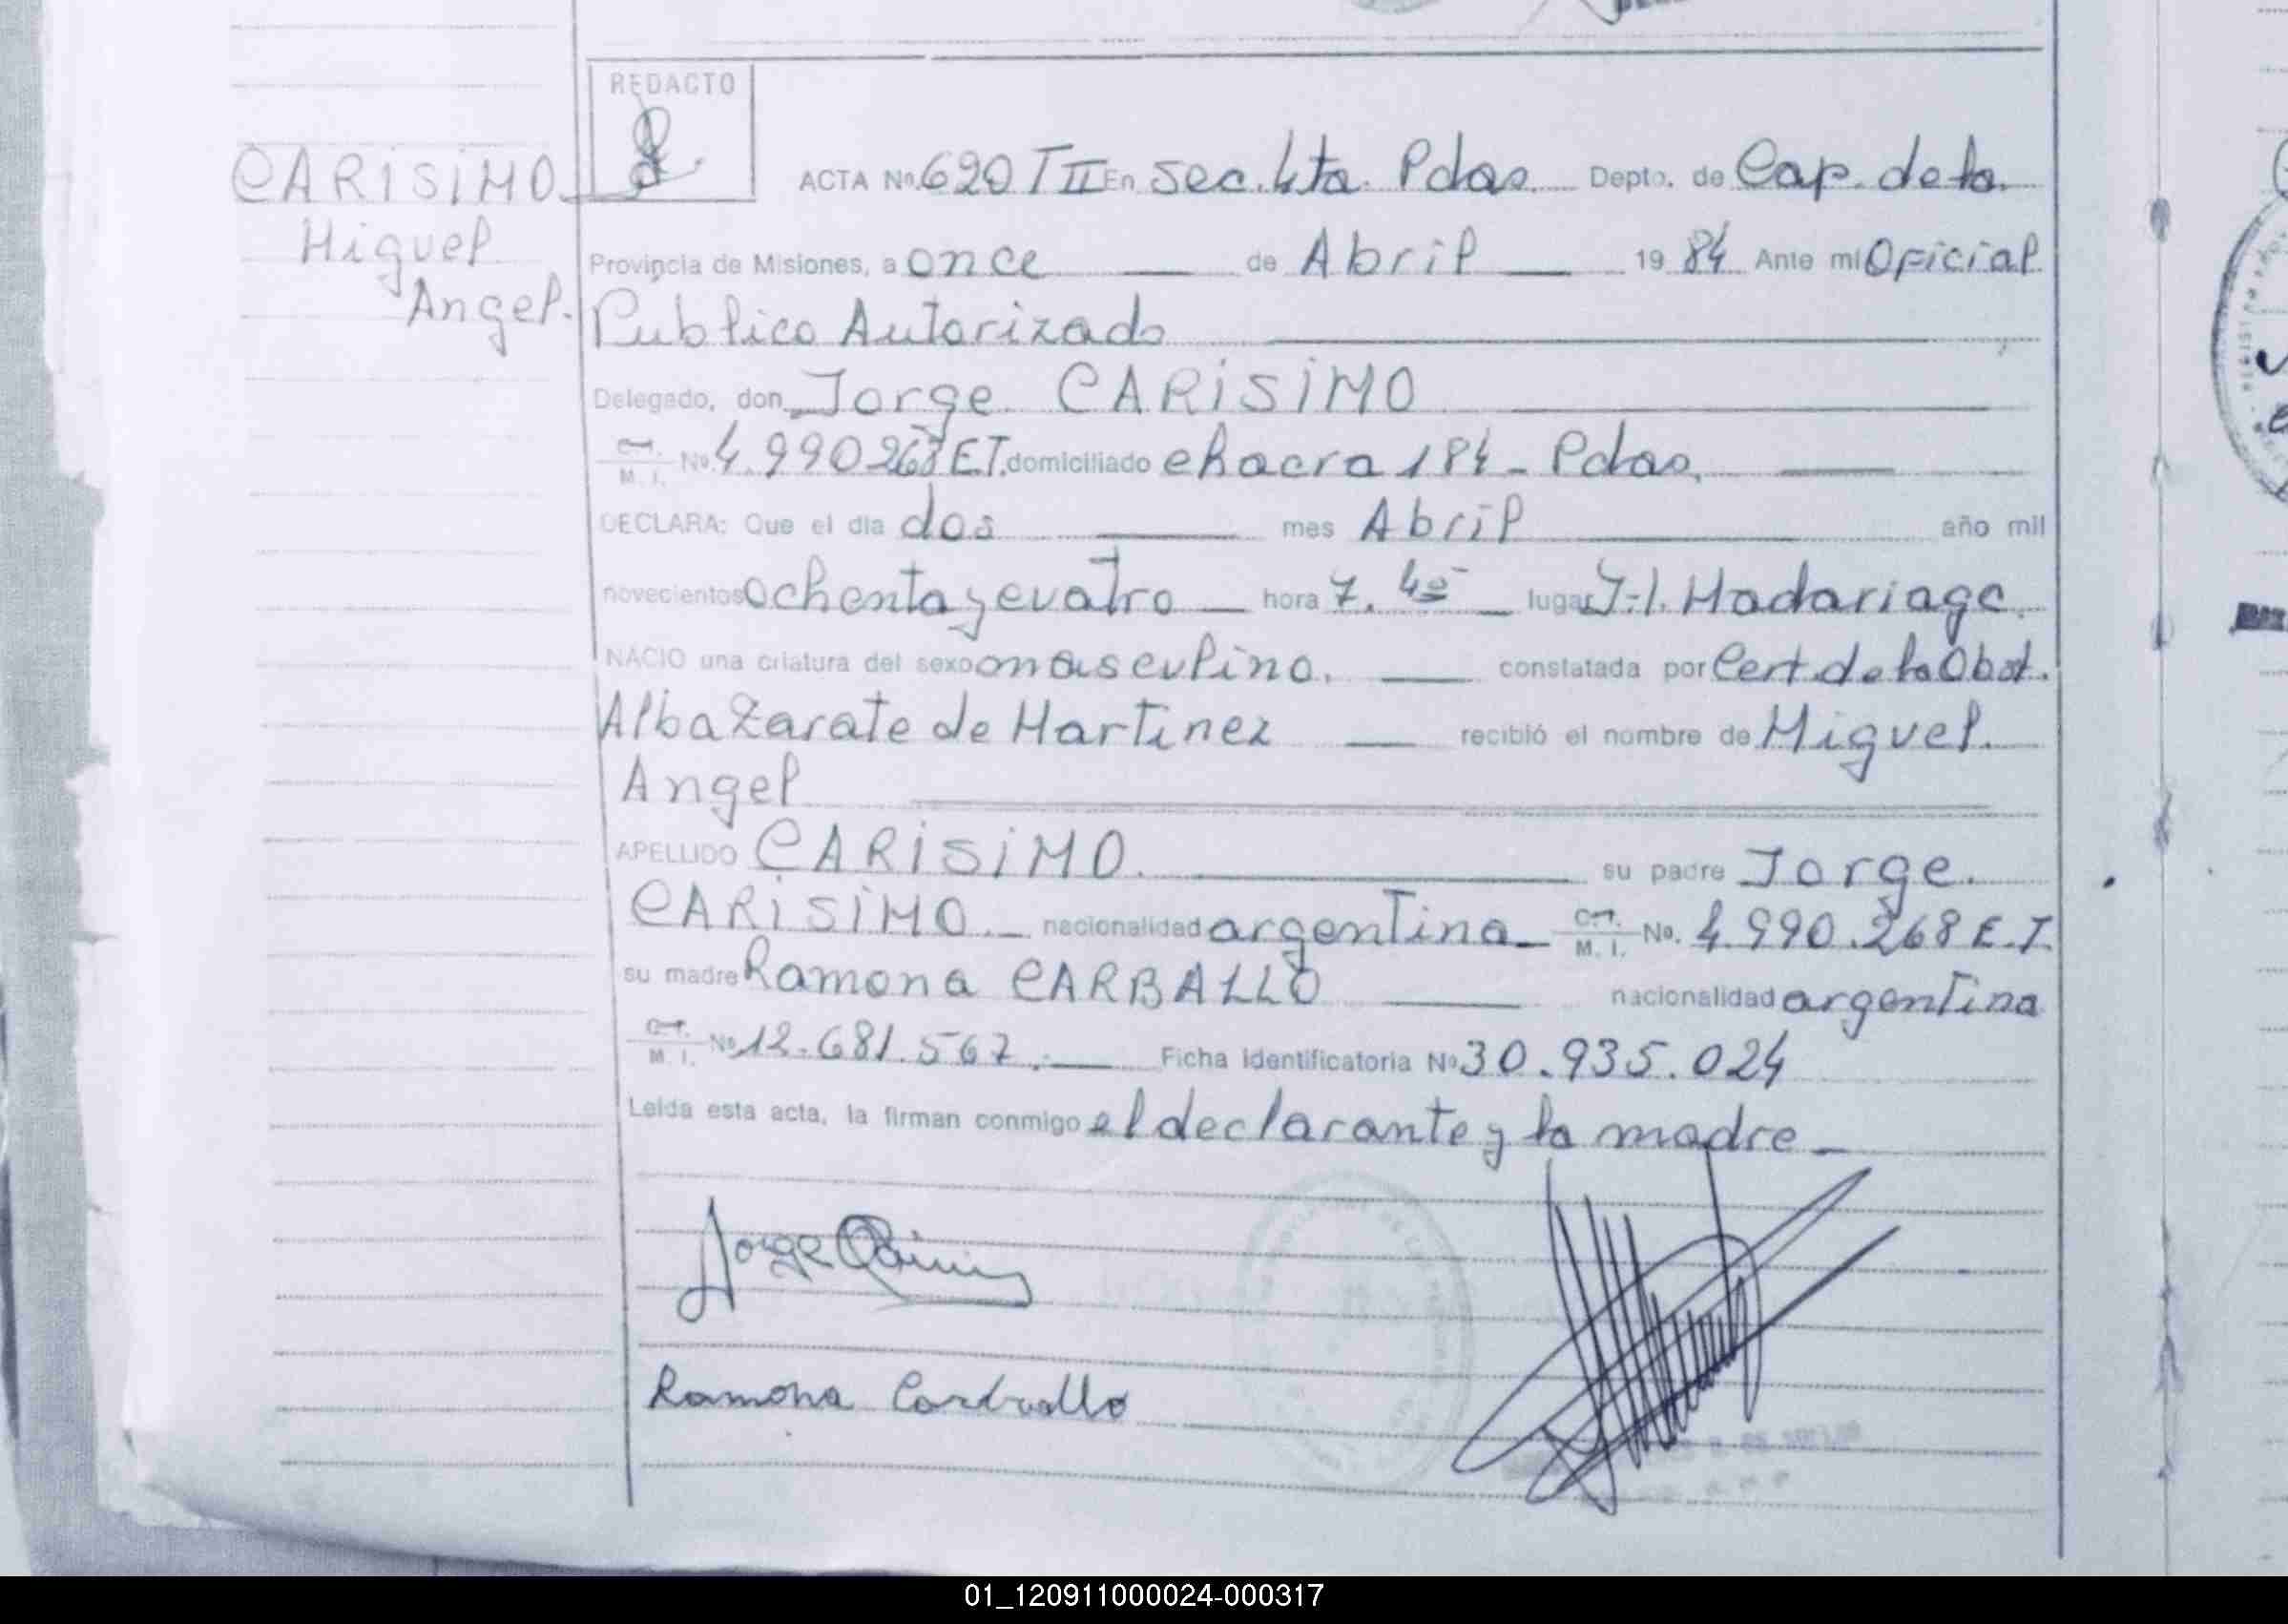 REDACTO
CARISIMO
Miguel
Angel.
ACTA No. 620 T II En Sec. 4ta. Pdas. Depto. de Cap. de la
Provincia de Misiones, a once de Abril 19 84 Ante mi Oficial
Publico Autorizado
Delegado, don Jorge CARISIMO
M. I. No. 4.990.268 E.T. domiciliado chacra 184 - Pdas.
DECLARA: Que el dia dos mes Abril año mil
novecientos ochenta y cuatro hora 7. 45 lugar Madariaga
NACIO una criatura del sexo masculino. constatada por Cert. de la Obst.
Alba Zarate de Martinez recibió el nombre de Miguel
Angel
APELLIDO CARISIMO. su padre Jorge
CARISIMO. nacionalidad argentina C.I. M. I. No. 4.990.268 E.T.
su madre Ramona CARBALLO nacionalidad argentina
C.I. M. I. No 12.681.567. Ficha identificatoria No 30.935.024
Leida esta acta, la firman conmigo el declarante y la madre
Jorge
Ramona Carballo
01_120911000024-000317